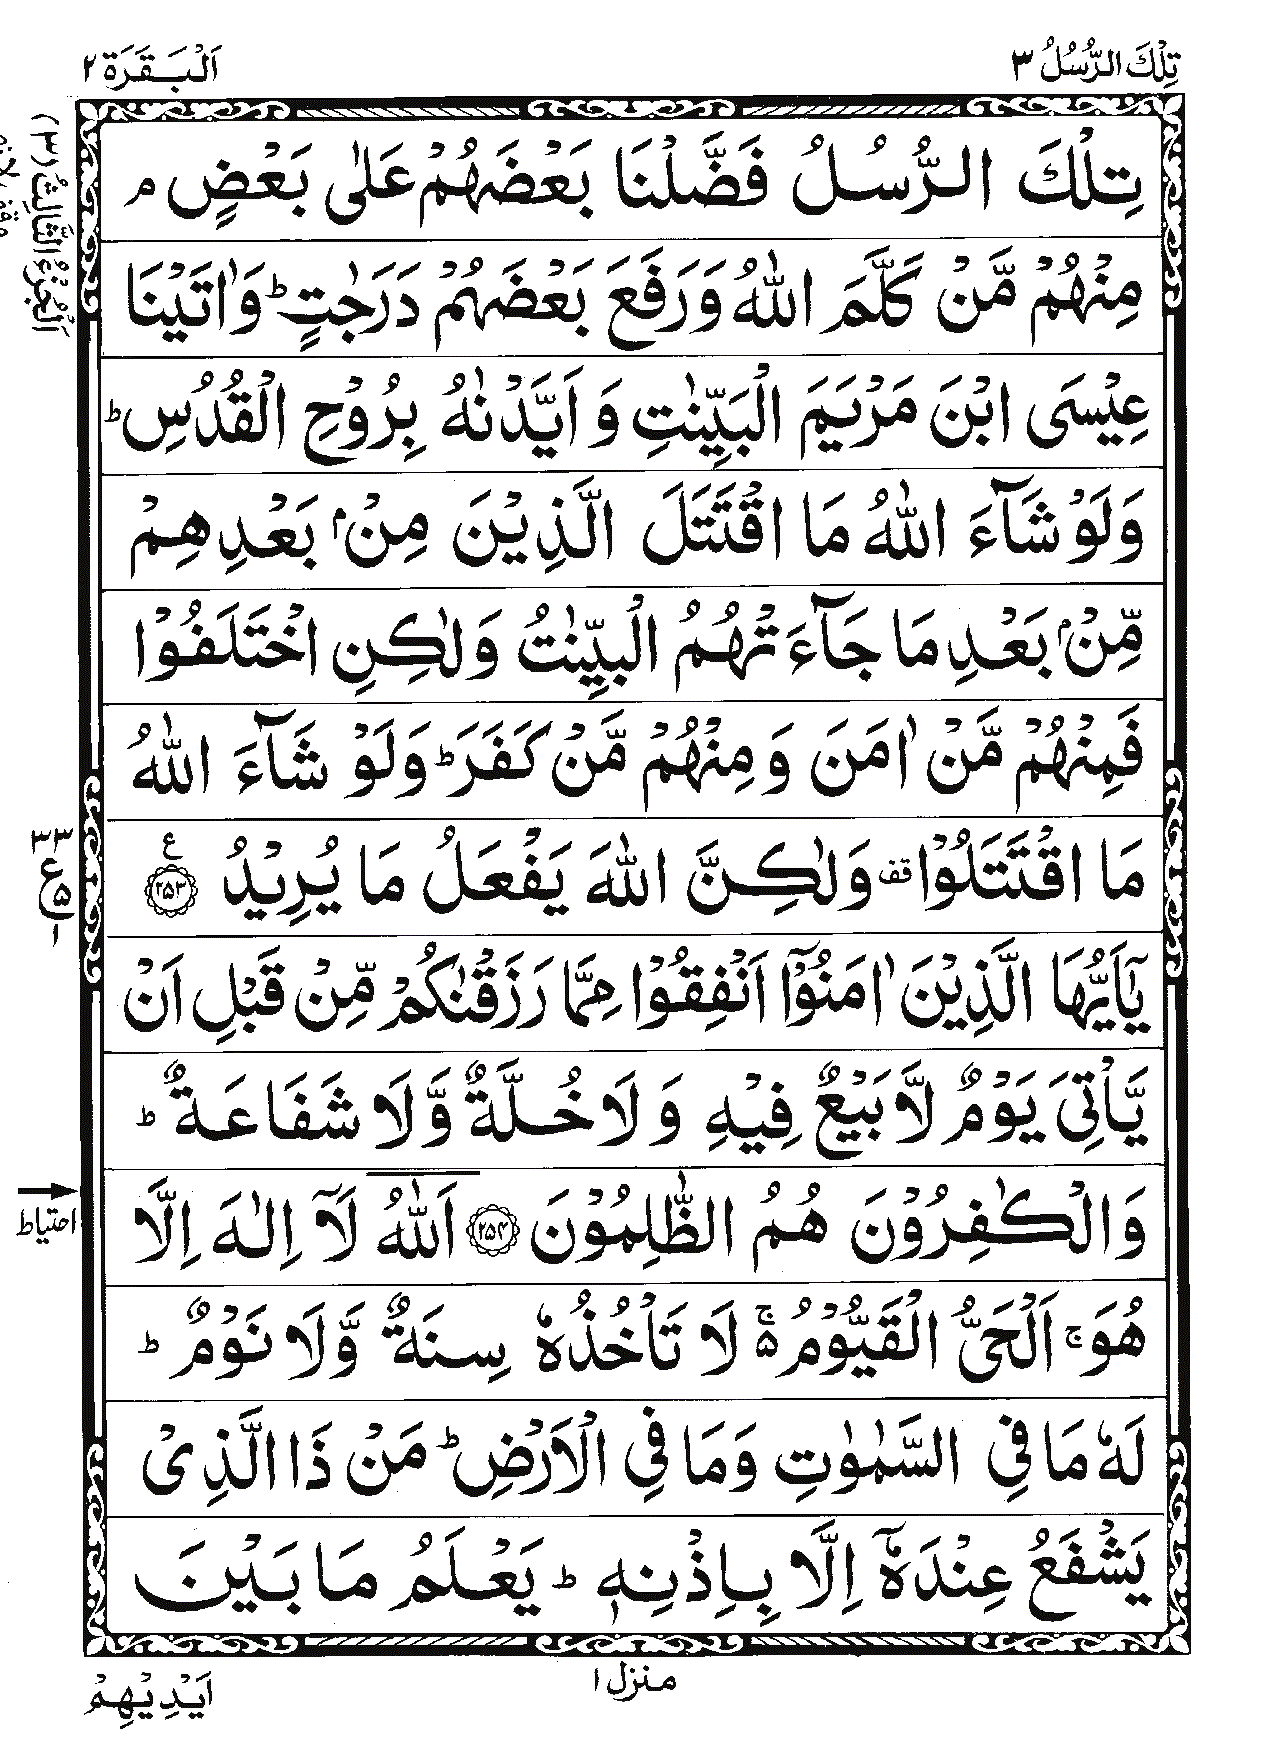 تِلْكَ الرُّسُلُ ٣
اَلْبَقَرَة ٢
تِلْكَ الرُّسُلُ فَضَّلْنَا بَعْضَهُمْ عَلٰى بَعْضٍ ۘ
مِنْهُمْ مَّنْ كَلَّمَ اللّٰهُ وَرَفَعَ بَعْضَهُمْ دَرَجٰتٍ ؕ وَاٰتَيْنَا
عِيْسَى ابْنَ مَرْيَمَ الْبَيِّنٰتِ وَ اَيَّدْنٰهُ بِرُوْحِ الْقُدُسِ ؕ
وَلَوْ شَآءَ اللّٰهُ مَا اقْتَتَلَ الَّذِيْنَ مِنْۢ بَعْدِهِمْ
مِّنْۢ بَعْدِ مَا جَآءَتْهُمُ الْبَيِّنٰتُ وَلٰكِنِ اخْتَلَفُوْا
فَمِنْهُمْ مَّنْ اٰمَنَ وَمِنْهُمْ مَّنْ كَفَرَ ؕ وَلَوْ شَآءَ اللّٰهُ
مَا اقْتَتَلُوْا قف وَلٰكِنَّ اللّٰهَ يَفْعَلُ مَا يُرِيْدُ ع ﴿۲۵۳﴾
يٰۤاَيُّهَا الَّذِيْنَ اٰمَنُوْۤا اَنْفِقُوْا مِمَّا رَزَقْنٰكُمْ مِّنْ قَبْلِ اَنْ
يَّاْتِىَ يَوْمٌ لَّا بَيْعٌ فِيْهِ وَلَا خُلَّةٌ وَّلَا شَفَاعَةٌ ؕ
وَالْكٰفِرُوْنَ هُمُ الظّٰلِمُوْنَ ﴿۲۵۴﴾ اَللّٰهُ لَاۤ اِلٰهَ اِلَّا
هُوَ ۚ اَلْحَىُّ الْقَيُّوْمُ ۵ۚ لَا تَاْخُذُهٗ سِنَةٌ وَّلَا نَوْمٌ ؕ
لَهٗ مَا فِى السَّمٰوٰتِ وَمَا فِى الْاَرْضِ ؕ مَنْ ذَا الَّذِىْ
يَشْفَعُ عِنْدَهٗۤ اِلَّا بِاِذْنِهٖ ؕ يَعْلَمُ مَا بَيْنَ
اَلْجُزْءُ الثَّالِثُ (٣)
٣٣
ع
۵
١
احتیاط
منزل ١
اَيْدِيْهِمْ